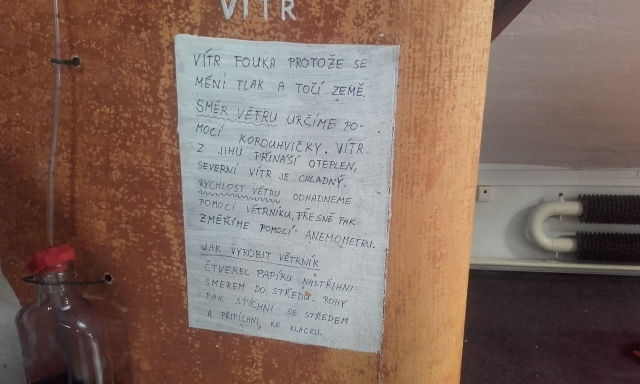 VÍTR
VÍTR FOUKA PROTOŽE SE
MĚNÍ TLAK A TOČÍ ZEMĚ.
SMĚR VĚTRU URČÍME PO-
MOCÍ KOROUHVIČKY. VÍTR
Z JIHU PŘINAŠÍ OTEPLENÍ,
SEVERNÍ VÍTR JE CHLADNÝ.
RYCHLOST VĚTRU ODHADNEME
POMOCÍ VĚTRNÍKU, PŘESNĚ PAK
ZMĚŘÍME POMOCÍ ANEMOMETRU.
JAK VYROBIT VĚTRNÍK
ČTVEREC PAPÍRU NASTŘIHNI
SMĚREM DO STŘEDU. ROHY
PAK STÍCHNI SE STŘEDEM
A PŘIPÍCHNI KE KLACKU.